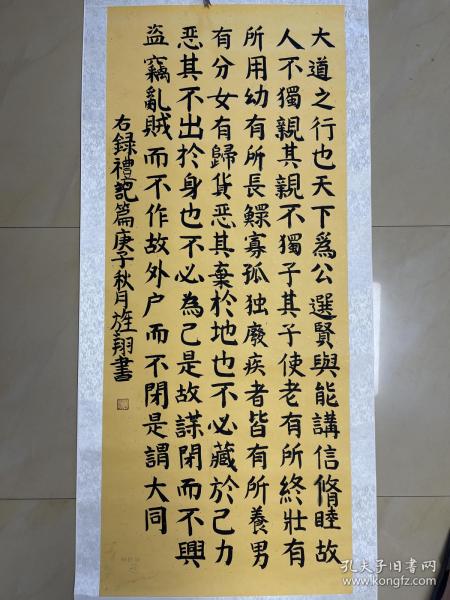 大道之行也天下爲公選賢與能講信脩睦故
人不獨親其親不獨子其子使老有所終壯有
所用幼有所長鰥寡孤独廢疾者皆有所養男
有分女有歸貨恶其棄於地也不必藏於己力
恶其不出於身也不必為己是故謀閉而不興
盗竊亂賊而不作故外户而不閉是謂大同
右録禮記篇庚子秋月旌翔書
孔夫子旧书网